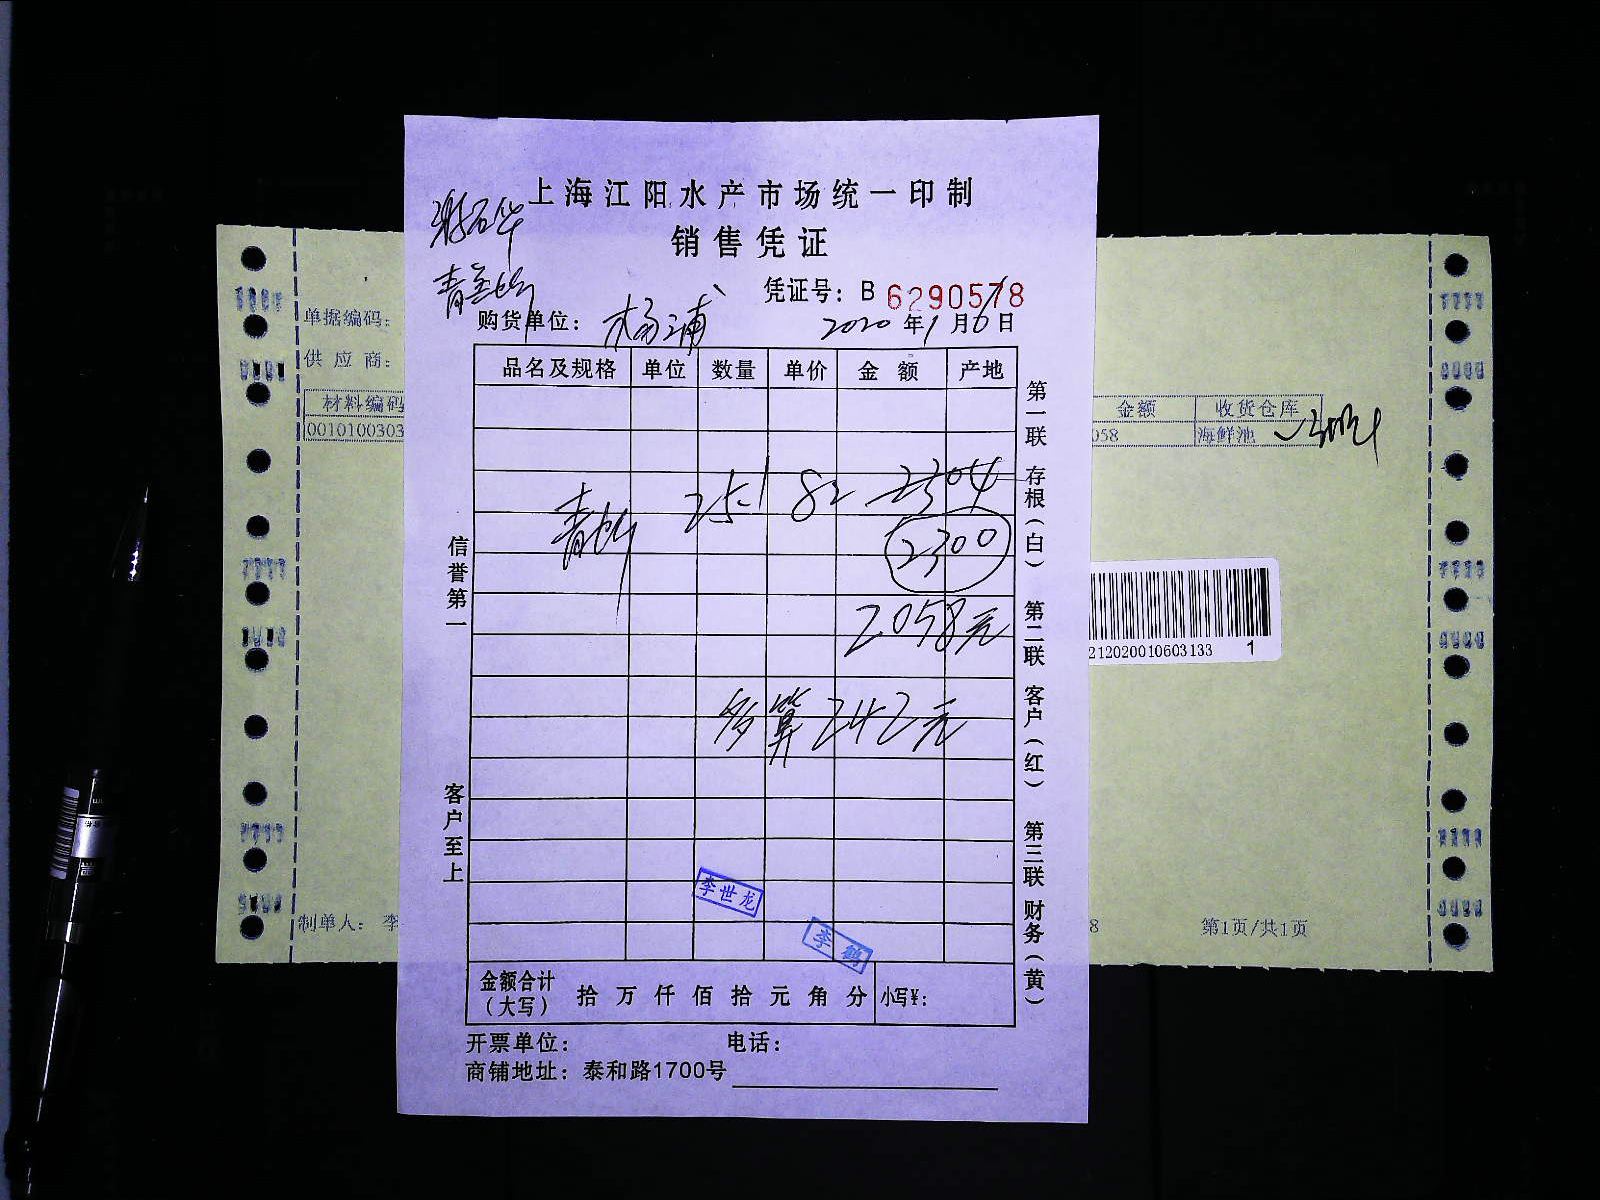 上海江阳水产市场统一印制
销售凭证
凭证号：B 6290578
购货单位：杨浦
2020年1月6日
品名及规格 单位 数量 单价 金额 产地
25.1 82 2304
2300
2058元
多算242元
信誉第一
客户至上
第一联 存根（白） 第二联 客户（红） 第三联 财务（黄）
李世龙
李鹤
金额合计（大写） 拾万仟佰拾元角分 小写¥：
开票单位： 电话：
商铺地址：泰和路1700号
单据编码：
供应商：
材料编码
0010100303
制单人：李
金额 收货仓库
058 海鲜池
212020010603133 1
8 第1页/共1页